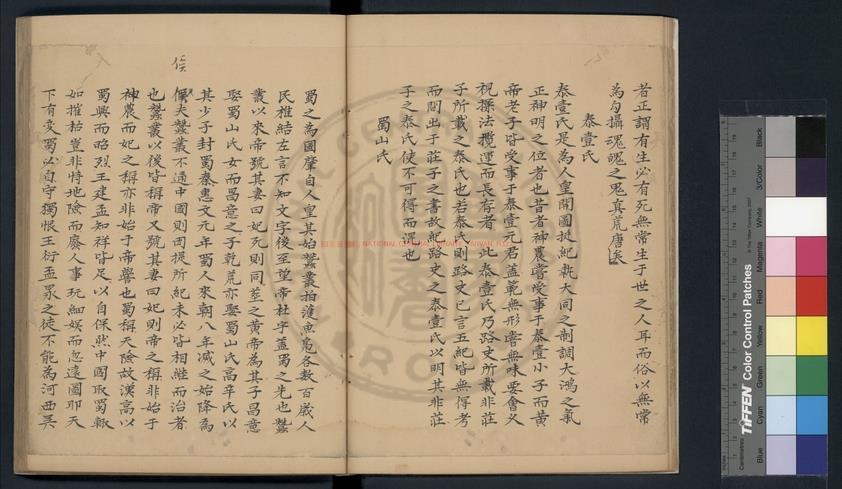 者正謂有生必有死無常生于世之人耳而俗以無常
為勾攝魂魄之鬼真荒唐矣
泰壹氏
泰壹氏是為人皇開圖挺紀執大同之制調大鴻之氣
正神明之位者也昔者神農嘗受事于泰壹小子而黃
帝老子皆受事于泰壹元君蓋範無形嘗無味要會久
視操法攬運而長存者 此泰壹氏乃路史所載非莊
子所載之泰氏也若泰氏則路史已言五紀皆無得考
而間出于莊子之書故紀路史之泰壹氏以明其非莊
子之泰氏使不可得而混也
蜀山氏
蜀之為國肇自人皇其始蠶叢柏濩魚鳧各數百歲人
民椎結左言不知文字後至望帝杜宇蓋蜀之先也蠶
叢以來帝號其妻曰妃死則同塟之黃帝為其子昌意
娶蜀山氏女而昌意之子乾荒亦娶蜀山氏高辛氏以
其少子封蜀秦惠文元年蜀人來朝八年滅之始降為
侯
夫蠶叢不通中國則固提所紀未必皆相繼而治者
也蠶叢以後皆稱帝又號其妻曰妃則帝之稱非始于
神農而妃之稱亦非始于帝嚳也蜀稱天險故漢高以
蜀興而昭烈王建孟知祥皆足以自保然中國取蜀輙
如摧枯豈非恃地險而廢人事玩細娛而忽遠圖耶天
下有變蜀必自守獨恨王衍孟昶之徒不能為河西吳
NATIONAL CENTRAL LIBRARY, TAIWAN, R.O.C
TIFFEN Color Control Patches
© The Tiffen Company, 2007
Centimetres
Blue
Cyan
Green
Yellow
Red
Magenta
White
3/Color
Black